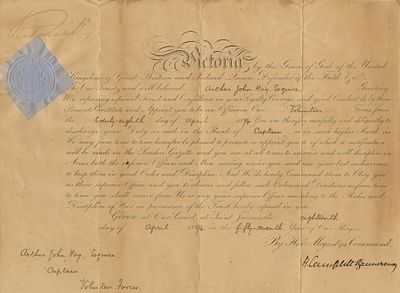 Victoria by the Grace of God of the United
Kingdom of Great Britain and Ireland Queen Defender of the Faith &c.
To Our Trusty and well beloved Arthur John Hay Esquire Greeting
We reposing especial Trust and Confidence in your Loyalty Courage and good Conduct do by these
Presents Constitute and Appoint you to be an Officer in Our Volunteer Forces from
the twenty-eighth day of April 1894 You are therefore carefully and diligently to
discharge your Duty as such in the Rank of Captain or in such higher Rank as
We may from time to time hereafter be pleased to promote or appoint you to of which a notification
will be made in the London Gazette and you are at all times to exercise and well discipline in
Arms both the inferior Officers and Men serving under you and use your best endeavours
to keep them in good Order and Discipline. And We do hereby Command them to Obey you
as their superior Officer and you to observe and follow such Orders and Directions as from time
to time you shall receive from Us or any your superior Officer according to the Rules and
Discipline of War in pursuance of the Trust hereby reposed in you.
Given at Our Court at Saint James's the eighteenth
day of April 1894 in the fifty-seventh Year of Our Reign
By Her Majesty's Command.
Arthur John Hay Esquire
Captain
Volunteer Forces
H Campbell Bannerman